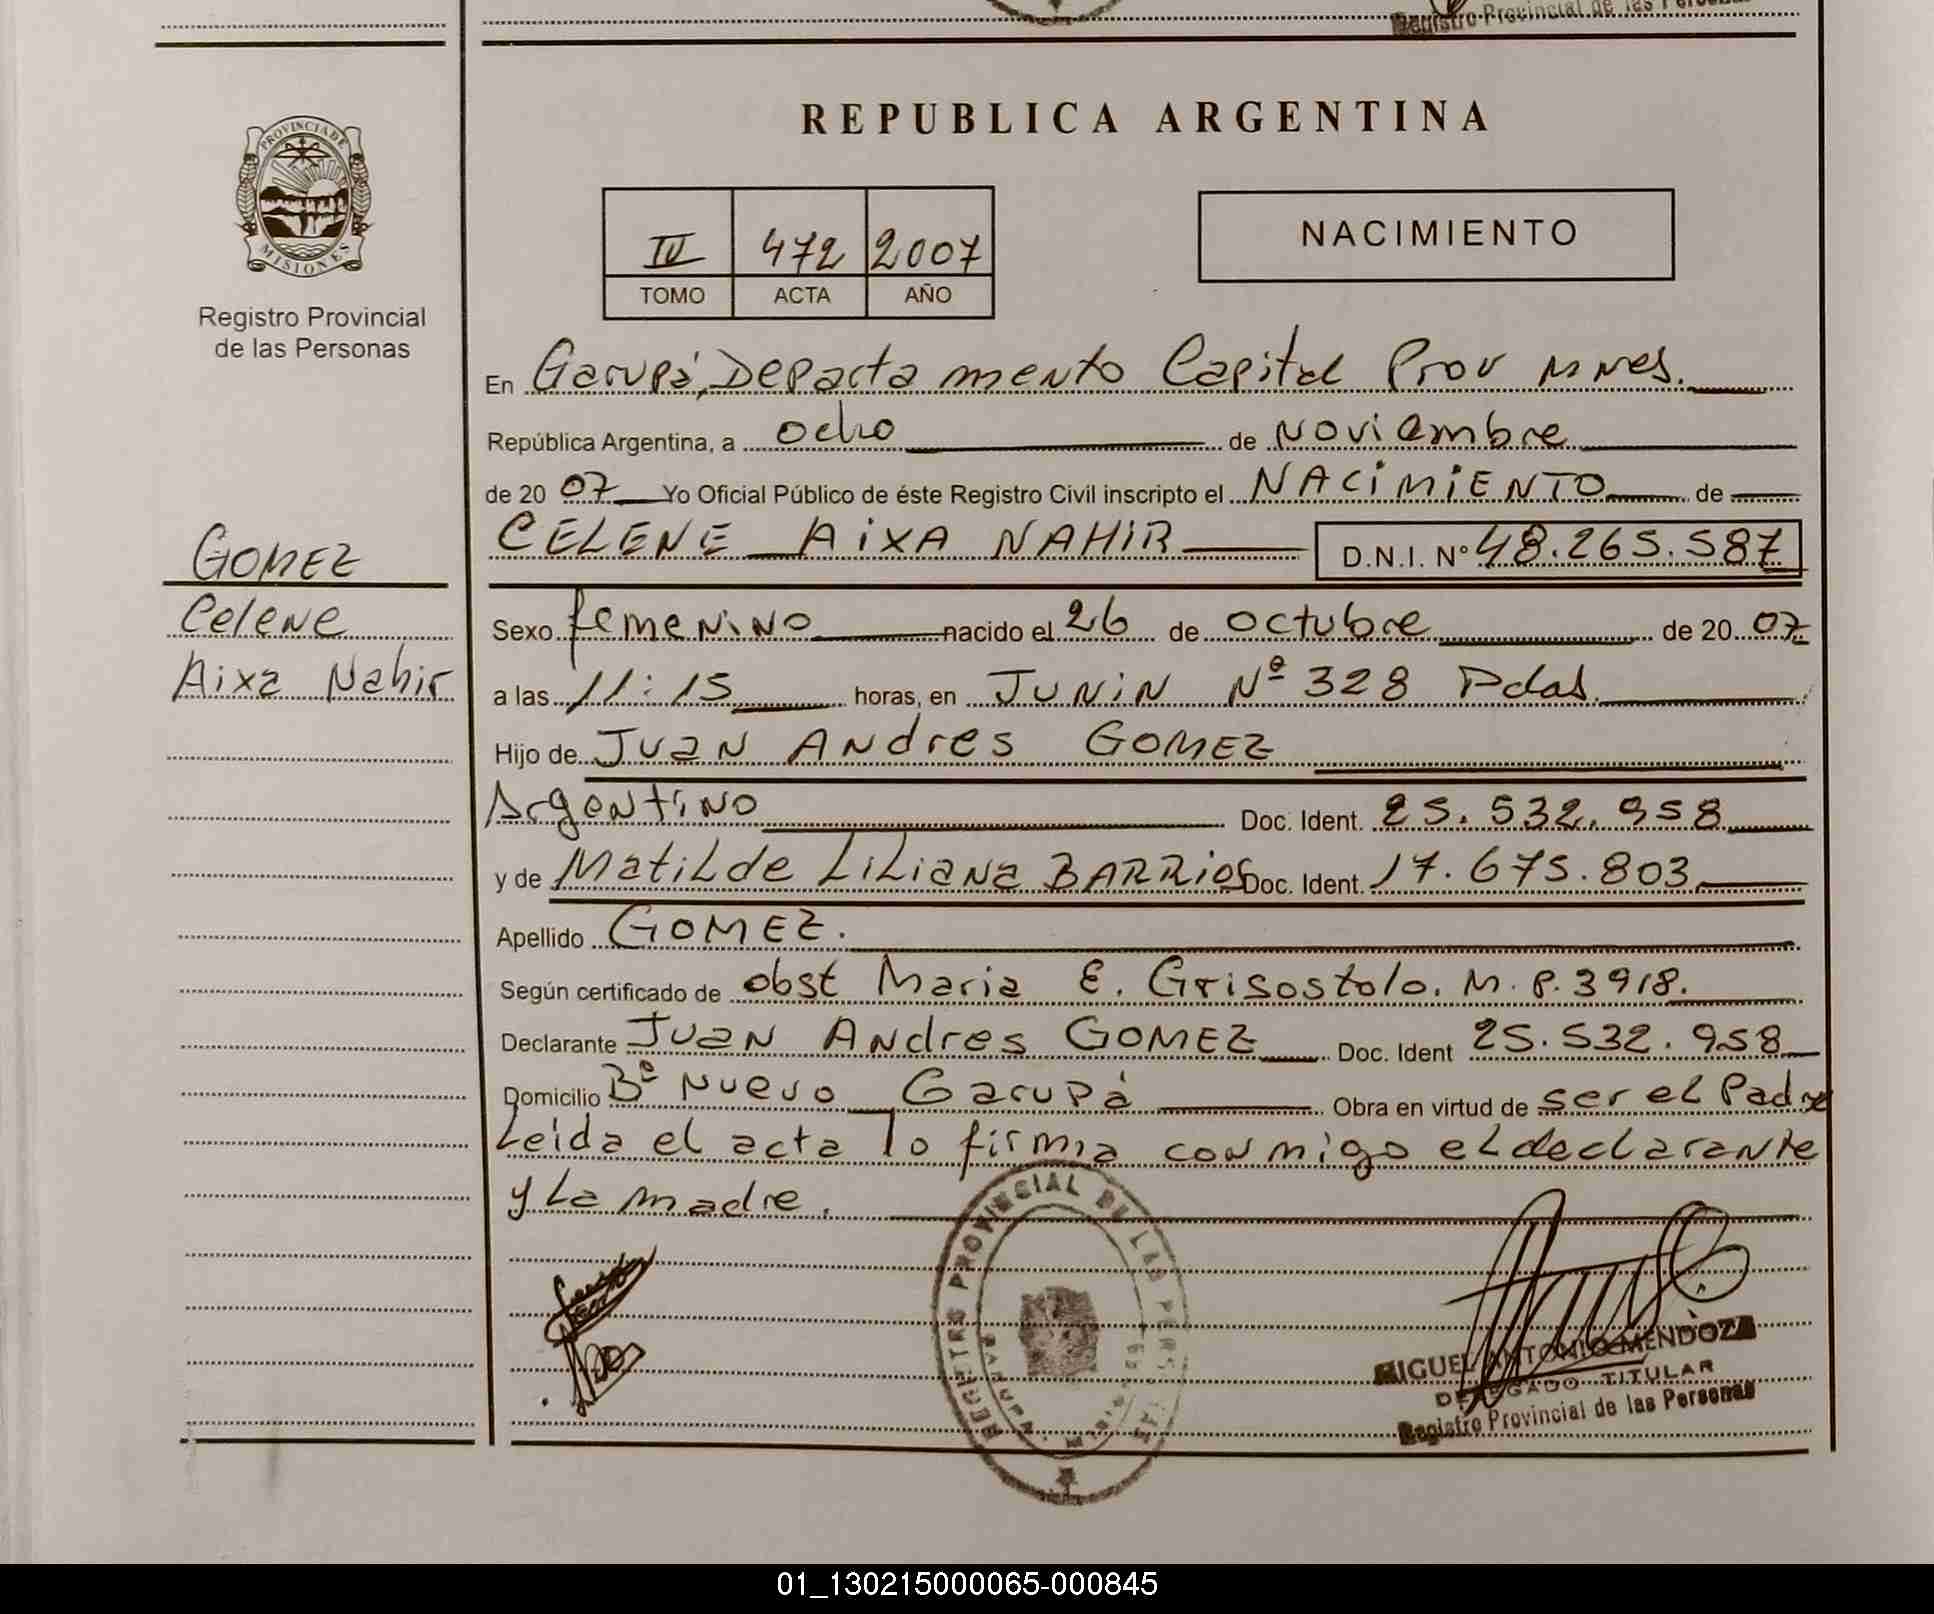 Registro Provincial de las Personas
REPUBLICA ARGENTINA
PROVINCIA DE
MISIONES
Registro Provincial
de las Personas
IV 472 2007
TOMO ACTA AÑO
NACIMIENTO
En Garupá, Departamento Capital Prov Mnes.
República Argentina, a ocho de noviembre
de 20 07 Yo Oficial Público de éste Registro Civil inscripto el NACIMIENTO de
CELENE AIXA NAHIR D.N.I. Nº 48.265.587
GOMEZ
Celene
Aixa Nahir
Sexo femenino nacido el 26 de octubre de 20 07
a las 11:15 horas, en JUNIN Nº 328 Pdas.
Hijo de Juan Andres GOMEZ
Argentino Doc. Ident. 25.532.958
y de Matilde Liliana BARRIOS Doc. Ident. 17.675.803
Apellido GOMEZ.
Según certificado de obst Maria E. Grisostolo. M.P. 3918.
Declarante Juan Andres GOMEZ Doc. Ident 25.532.958
Domicilio Bº Nuevo Garupá Obra en virtud de ser el Padre
Leida el acta lo firma conmigo el declarante
y la madre.
REGISTRO PROVINCIAL DE LAS PERSONAS
MIGUEL ANTONIO MENDOZA
DELEGADO TITULAR
Registro Provincial de las Personas
01_130215000065-000845